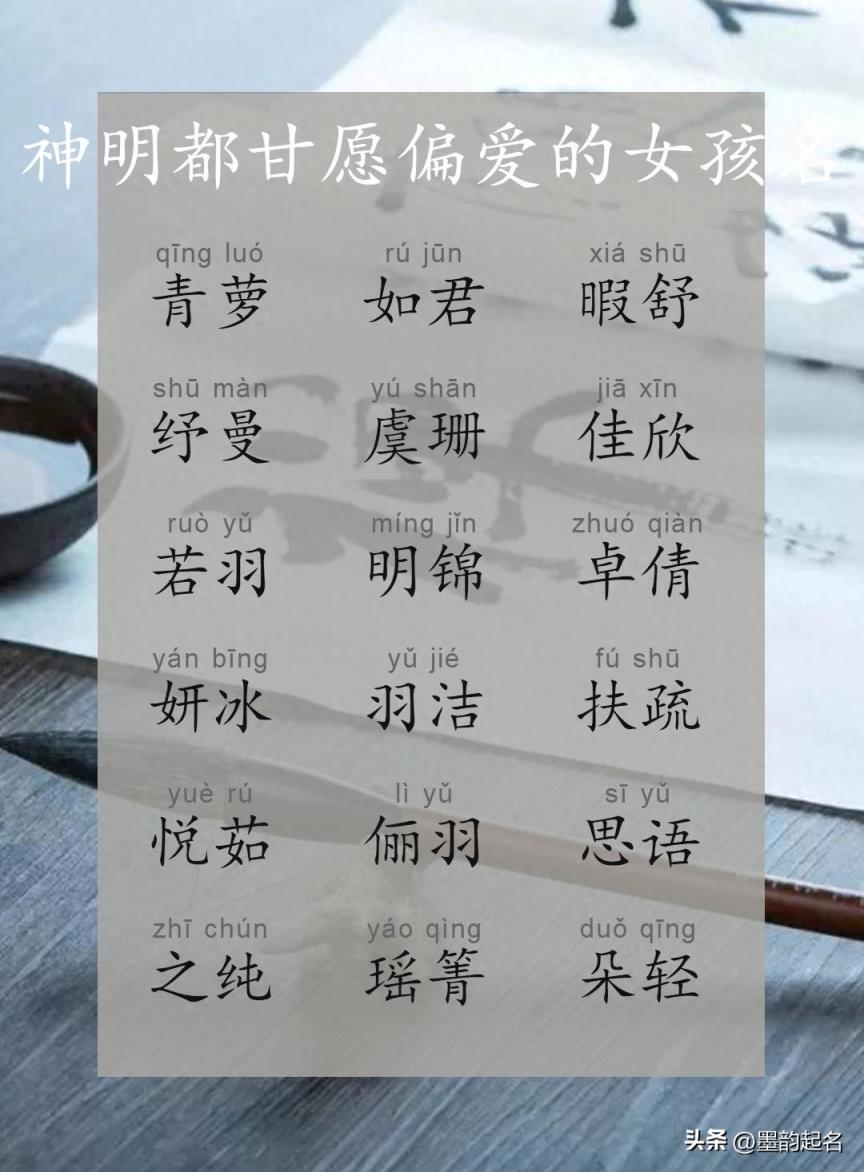 神明都甘愿偏爱的女孩名
qīng luó rú jūn xiá shū
青萝 如君 暇舒
shū màn yú shān jiā xīn
纾曼 虞珊 佳欣
ruò yǔ míng jǐn zhuó qiàn
若羽 明锦 卓倩
yán bīng yǔ jié fú shū
妍冰 羽洁 扶疏
yuè rú lì yǔ sī yǔ
悦茹 俪羽 思语
zhī chún yáo qìng duǒ qīng
之纯 瑶箐 朵轻
头条 @墨韵起名